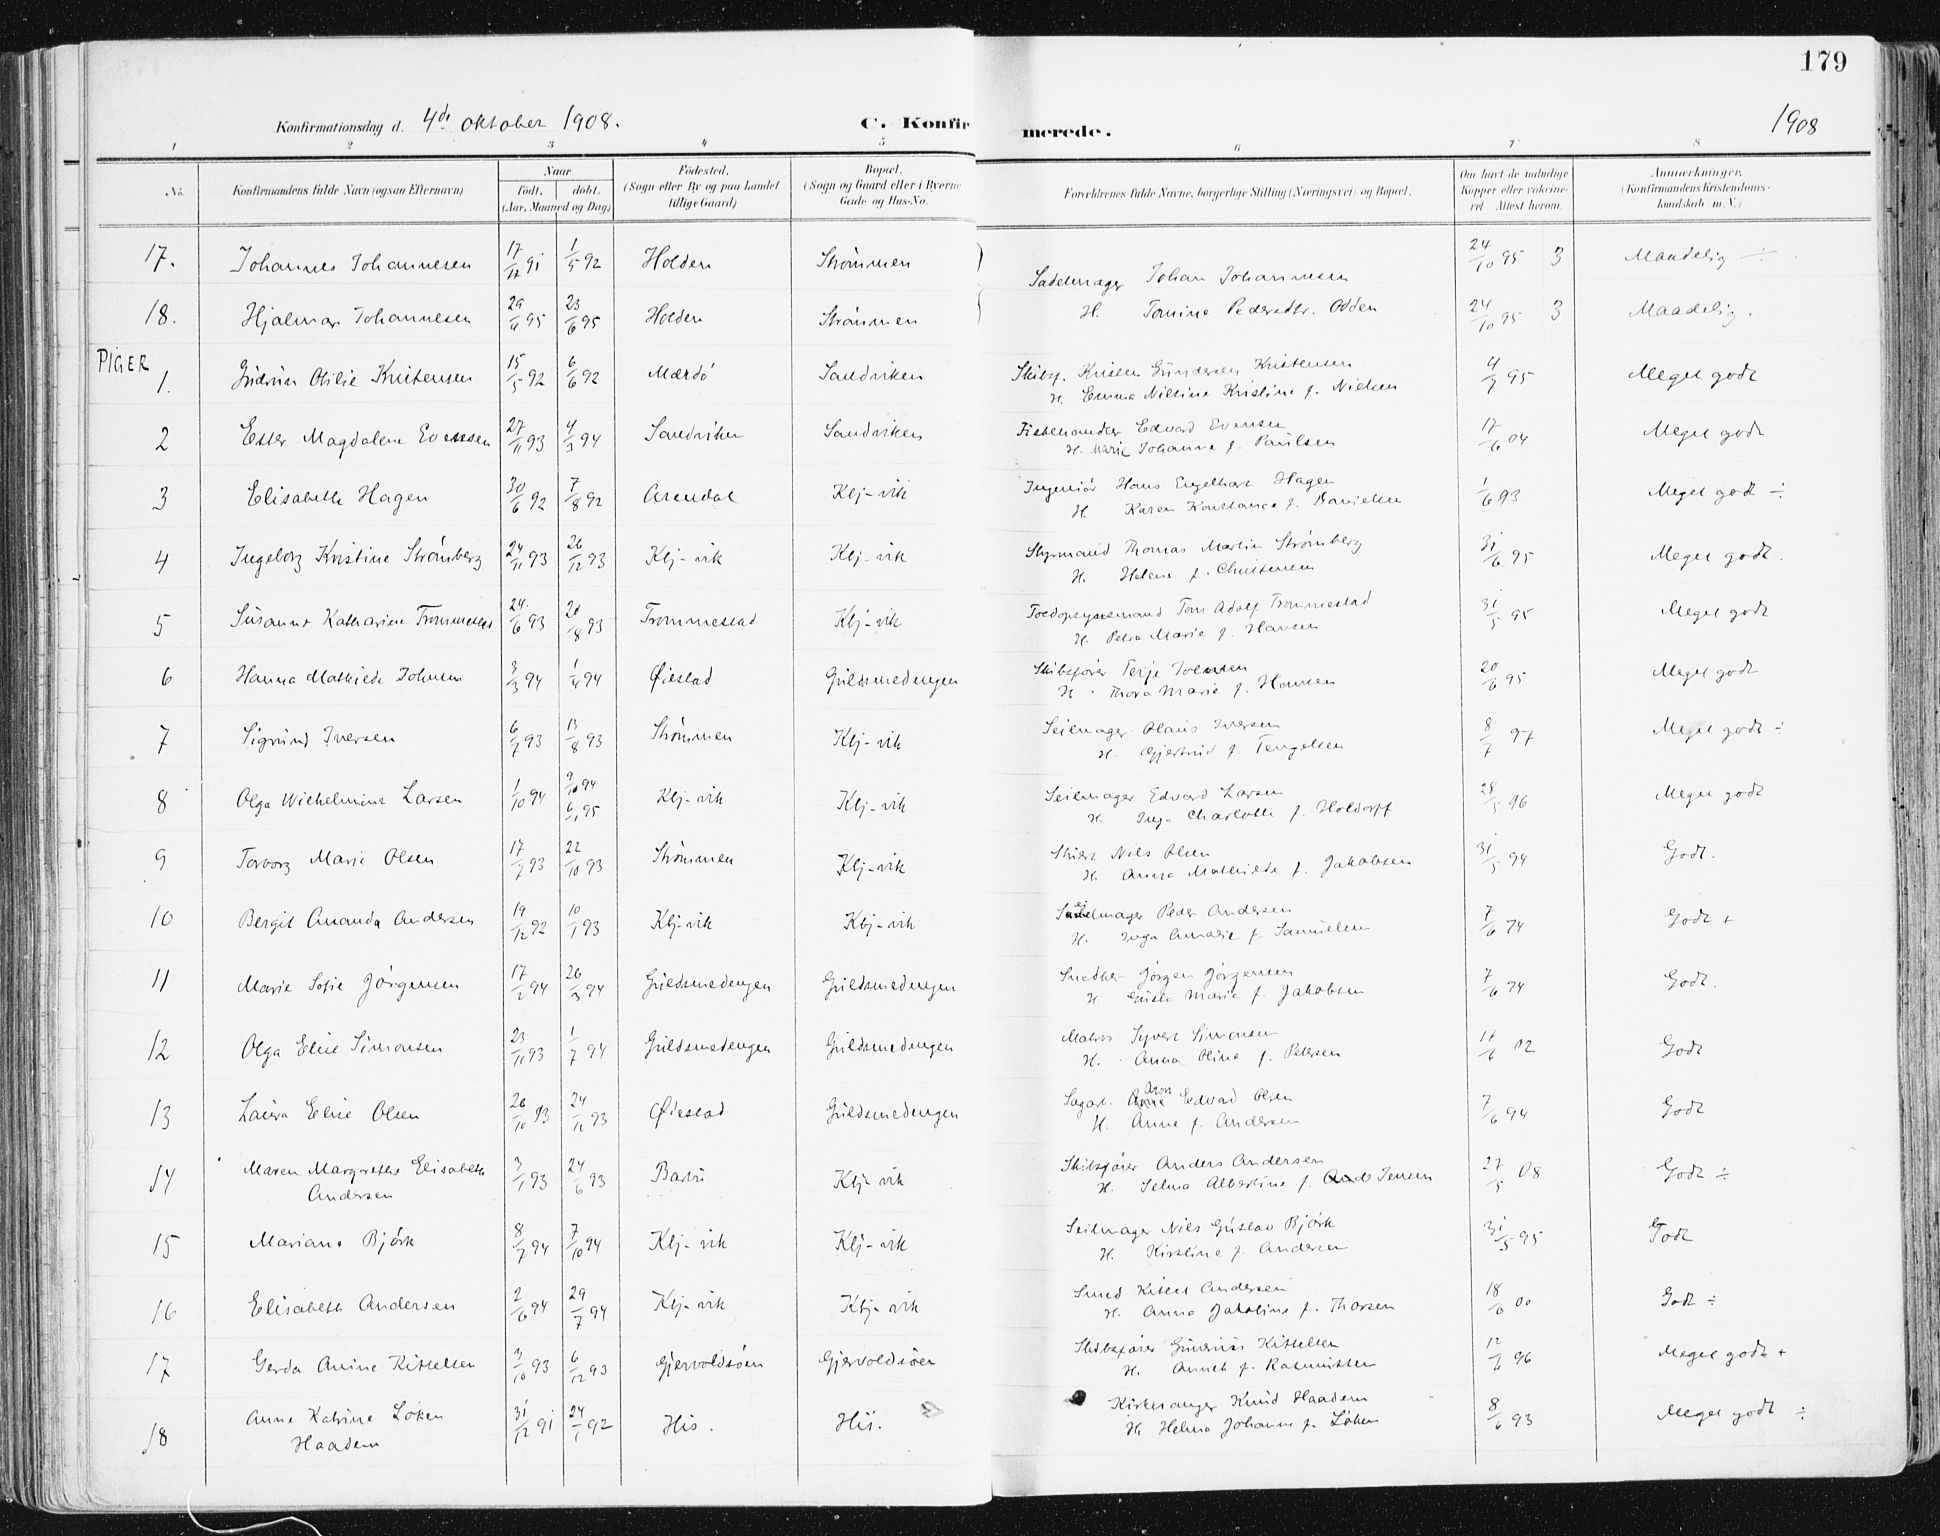 179
Konfirmationsdag d. 4de oktober 1908. C. Konfirmerede. 1908
1 2 3 4 5 6 7 8
No. Konfirmandens fulde Navn (ogsaa Efternavn) Naar født. døbt. (Aar, Maaned og Dag) Fødested. (Sogn eller By og paa Landet tillige Gaard) Bopæl. (Sogn og Gaard eller i Byerne Gade og Hus-No. Forældrenes fulde Navne, borgerlige Stilling (Næringsvei) og Bopæl. Om havt de naturlige Kopper eller vaccineret Attest herom. Anmerkninger. (Konfirmandens Kristendomskundskab m. V.)
17. Johannes Johannesen 17/12 91 1/5 92 Holden Strømmen Sadelmager Johan Johannesen 24/10 95 3 Maadelig ÷
18. Hjalmar Johannesen 29/4 95 23/6 95 Holden Strømmen H. Tomine Pedersdtr. Odden 24/10 95 3 Maadelig.
PIGER
1. Gudrun Otilie Kristensen 15/5 92 6/6 92 Mærdø Sandviken Skibsf. Kristen Gundersen Kristensen 4/7 95 Meget godt
H. Emma Nilsine Kristine f. Nielsen
2 Ester Magdalene Evensen 27/11 93 4/3 94 Sandviken Sandviken Fiskehandler Edvard Evensen 17/6 04 Meget godt
H. Marie Johanne f. Paulsen
3 Elisabeth Hagen 30/6 92 7/8 92 Arendal Kbj-vik Ingeniør Hans Engelhart Hagen 1/6 93 Meget godt ÷
H. Karen Konstance f. Danielsen
4 Ingeborg Kristine Strømberg 24/11 93 26/12 93 Kbj-vik Kbj-vik Styrmand Thomas Martin Strømberg 31/6 95 Meget godt.
H. Helene f. Christensen
5 Susanne Katharine Trommestad 24/6 93 20/8 93 Trommestad Kbj-vik Toldopsynsmand Tom Adolf Trommestad 31/5 95 Meget godt
H. Petra Marie f. Hansen
6 Hanna Mathilde Johnsen 7/3 94 1/4 94 Øiestad Guldsmedengen Skibsfører Terje Johnsen 20/6 95 Meget godt
H. Thora Marie f. Hansen
7 Sigrund Iversen 6/7 93 13/8 93 Strømmen Kbj-vik Seilmager Olaus Iversen 8/7 97 Meget godt ÷
H. Gjertrud f. Tengelsen
8 Olga Wilhelmine Larsen 1/10 94 9/10 94 6/1 95 Kbj-vik Kbj-vik Seilmager Edvard Larsen 28/5 96 Meget godt
H. Inga Charlotte f. Holdorff
9 Torborg Marie Olsen 17/7 93 22/10 93 Strømmen Kbj-vik Nils Olsen 31/5 94 Godt.
H. Anna Mathilde f. Jakobsen
10 Bergit Amanda Andersen 19/12 92 10/1 93 Kbj-vik Kbj-vik Seilmager Peder Andersen 7/6 94 Godt +
H. Inga Amalie f. Samuelsen
11 Marie Sofie Jørgensen 17/2 94 26/3 94 Guldsmedengen Guldsmedengen Snedker Jørgen Jørgensen 7/6 94 Godt.
H. Gusta Marie f. Jakobsen
12 Olga Elise Simonsen 23/11 93 1/7 94 Guldsmedengen Guldsmedengen Matros Syvert Simonsen 17/6 02 Godt
H. Anna Oline f. Petersen
13 Laura Elise Olsen 26/10 93 24/12 93 Øiestad Guldsmedengen Sagarb. Aron Edvard Olsen 7/6 94 Godt
H. Anne f. Andersen
14 Maren Margrethe Elisabeth Andersen 3/1 93 24/6 93 Barbu Kbj-vik Skibsfører Anders Andersen 27/5 08 Godt ÷
H. Selma Albertine f. Jensen
15 Mariane Bjørk 8/7 94 7/10 94 Kbj-vik Kbj-vik Seilmager Nils Gustav Bjørk 31/5 95 Godt
H. Kirstine f. Andersen
16 Elisabeth Andersen 2/6 94 29/7 94 Kbj-vik Kbj-vik Smed Kittel Andersen 18/6 00 Godt ÷
H. Anna Jakobine f. Thorsen
17 Gerda Anine Kittelsen 3/10 93 6/12 93 Gjervoldsøen Gjervoldsøen Skibsfører Gunerius Kittelsen 12/6 96 Meget godt +
H. Anneth f. Rasmussen
18 Anne Katrine Løken Haadem 31/12 91 24/1 92 His. His. Kirkesanger Knud Haadem 8/6 93 Meget godt ÷
H. Helma Johanne f. Løken